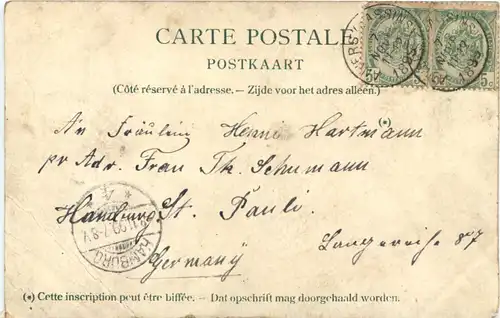 CARTE POSTALE
POSTKAART
(Côté réservé à l'adresse. — Zijde voor het adres alleen.)
(*)
An Fräulein Henni Hartmann
pr Adr. Frau Th. Schumann
Hamburg St. Pauli
Langereihe 87
Germany
HAMBURG
(*) Cette inscription peut être biffée. — Dat opschrift mag doorgehaald worden.